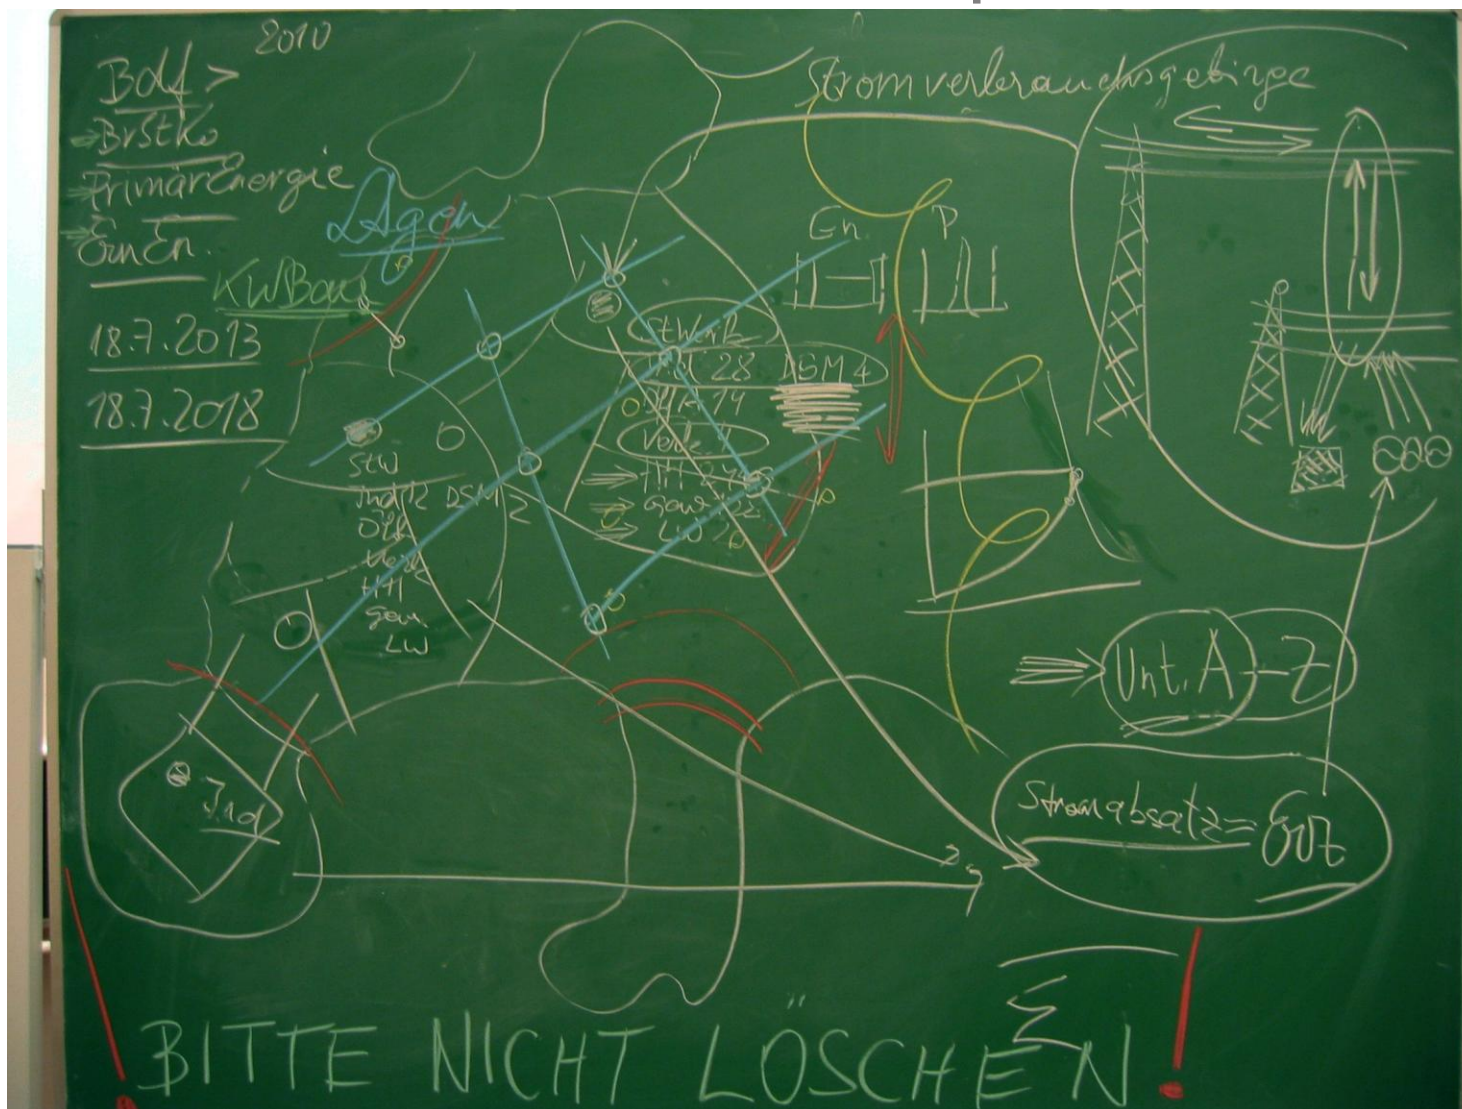 2010
Bdf >
BrStKo
PrimärEnergie
Ern En.
LAgen
KWBau
18.7.2013
18.7.2018
Stromverbrauchsgebirge
En. P
28 DSM 4
19
Verk.
HH
Gew. 22
LW
Stw
Ind 12 DSM 2
Öff
Verk
HH
gew.
LW
Ind
Unt. A - Z
Stromabsatz =
Σ
BITTE NICHT LÖSCHEN !